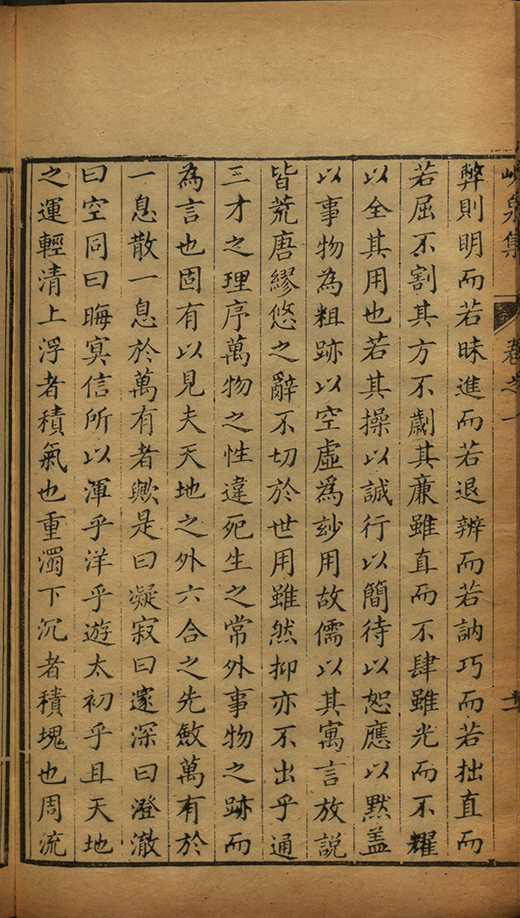 峴泉集 卷之一
弊則明而若昧進而若退辨而若訥巧而若拙直而
若屈不割其方不劌其廉雖直而不肆雖光而不耀
以全其用也若其操以誠行以簡待以恕應以默盖
以事物為粗跡以空虛為玅用故儒以其寓言放說
皆荒唐繆悠之辭不切於世用雖然抑亦不出乎通
三才之理序萬物之性違死生之常外事物之跡而
為言也固有以見夫天地之外六合之先斂萬有於
一息散一息於萬有者歟是曰凝寂曰邃深曰澄澈
曰空同曰晦冥信所以渾乎洋乎遊太初乎且天地
之運輕清上浮者積氣也重濁下沉者積塊也周流